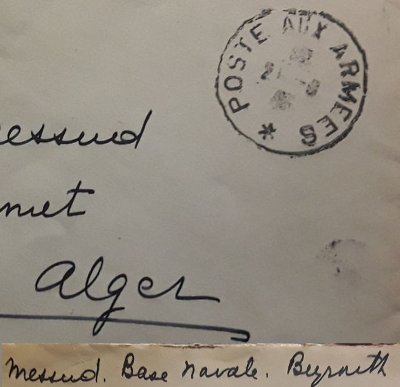 POSTE AUX ARMEES *
essud
met
Alger
Messud. Base Navale. Beyrouth